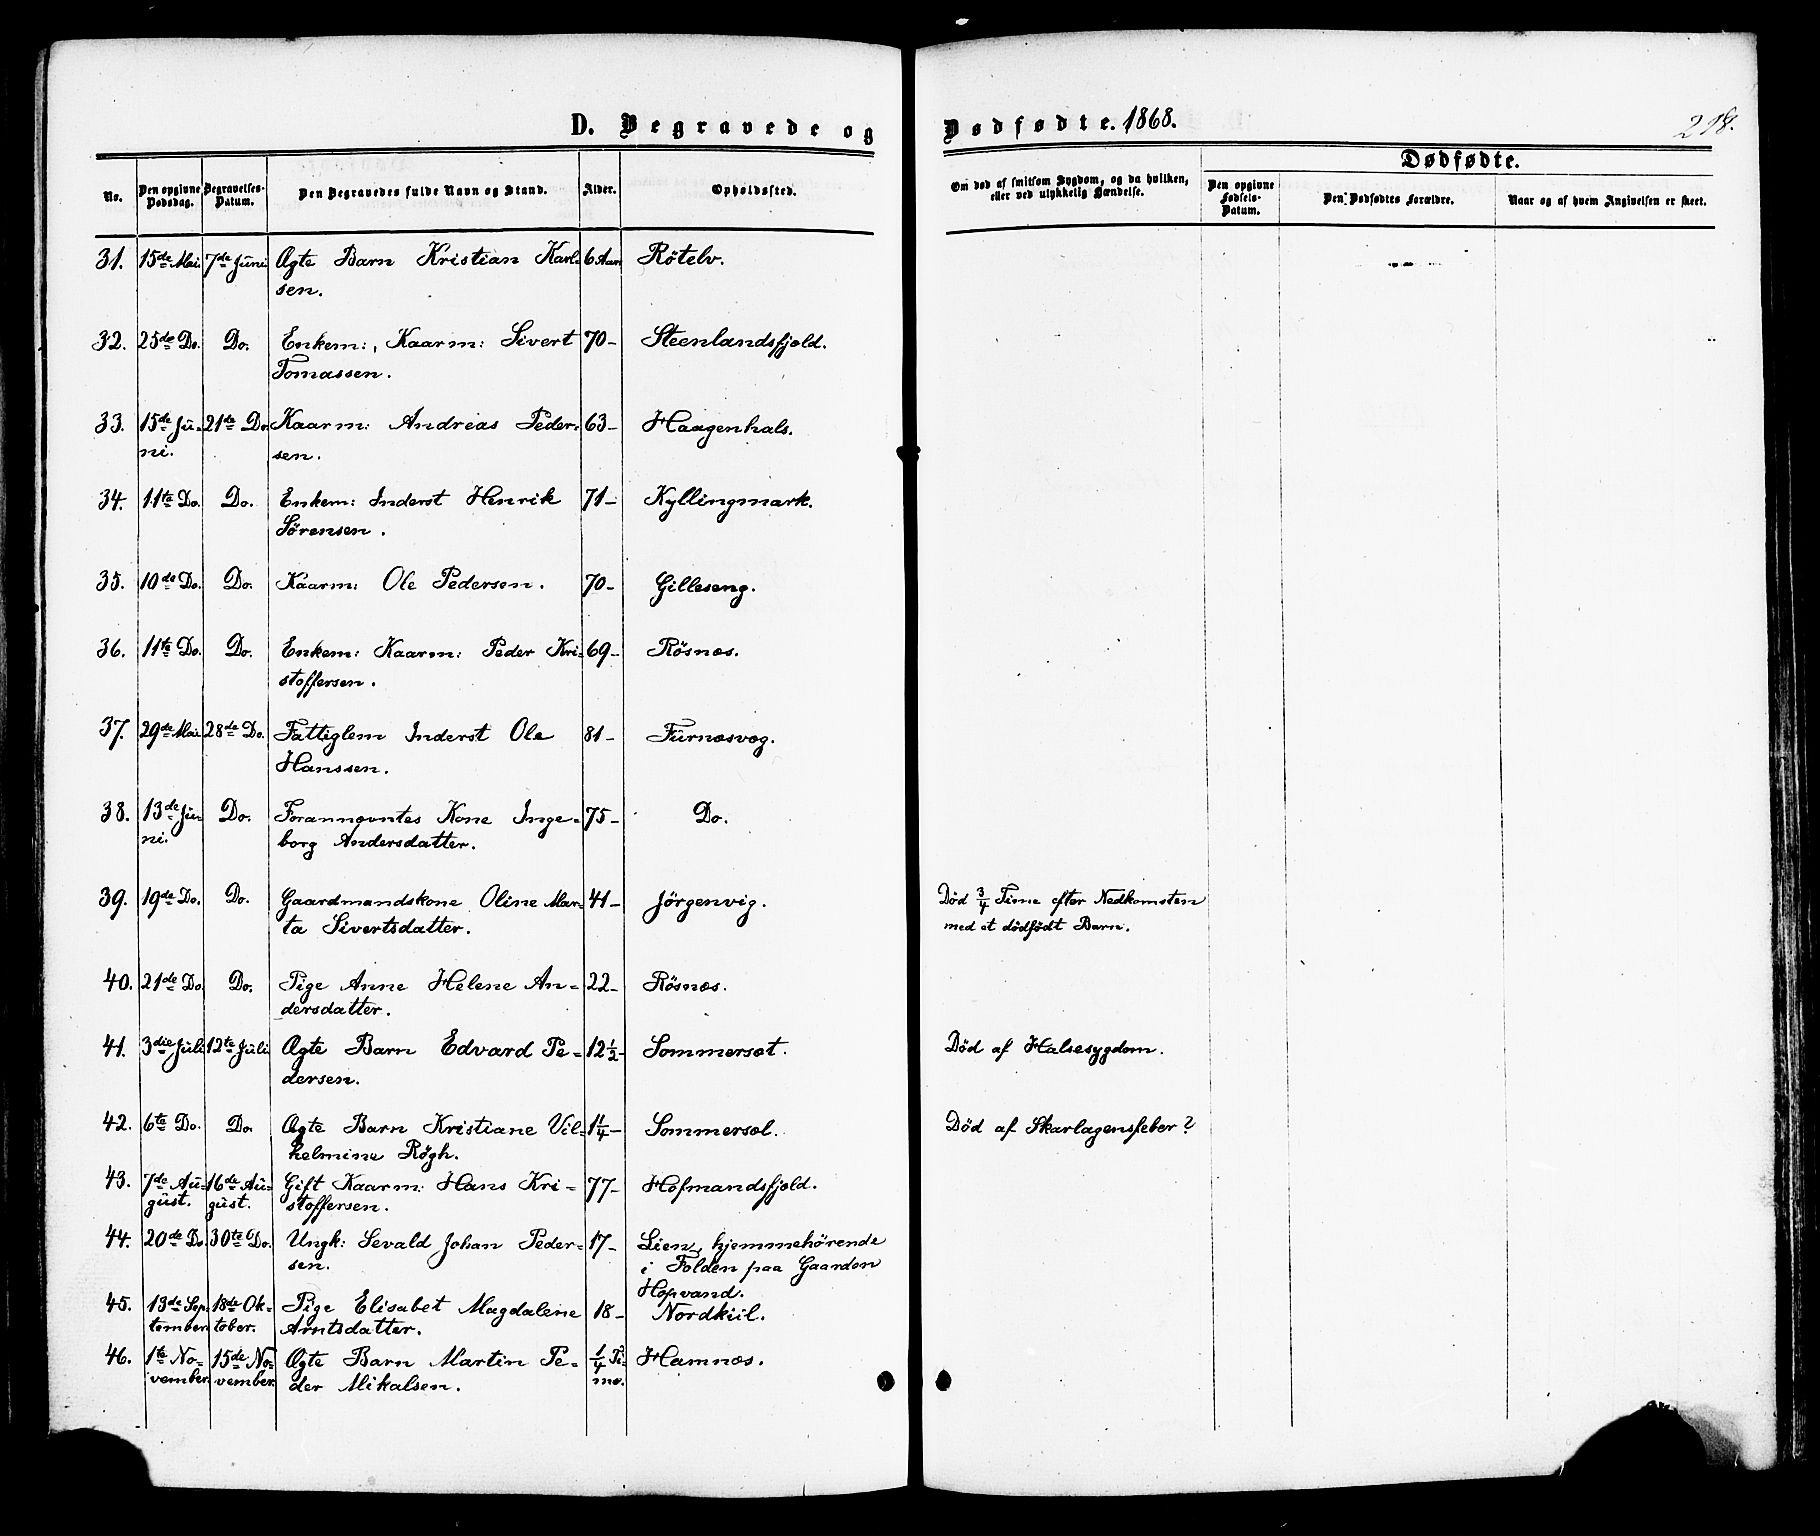 D. Begravede og Dødfødte. 1868. 218.
No. Den opgivne Dødsdag. Begravelses-Datum. Den Begravedes fulde Navn og Stand. Alder. Opholdssted.
Om død af smitsom Sygdom, og da hvilken, eller ved ulykkelig Hændelse.
Dødfødte.
Den opgivne Fødsels-Datum. Den Dødfødtes Forældre. Naar og af hvem Angivelsen er skeet.
31. 15de Mai. 7de Juni Ægte Barn Kristian Karl- 6 Aar Rötelv.
sen.
32. 25de Do. Do. Enkem:, Kaarm: Sivert 70- Steenlandsfjæld.
Tomassen.
33. 15de Ju- 21de Do. Kaarm: Andreas Peder- 63- Haagenhals.
ni. sen.
34. 11te Do. Do. Enkem: Inderst Henrik 71- Kyllingmark.
Sörensen.
35. 10de Do. Do. Kaarm: Ole Pedersen. 70- Gilleseng.
36. 11te Do. Do. Enkem: Kaarm: Peder Kri- 69- Rösnæs.
stoffersen.
37. 29de Mai 28de Do. Fattiglem Inderst Ole 81- Furnæsvæg.
Hanssen.
38. 13de Ju- Do. Forannævntes Kone Inge- 75- Do.
ni. borg Andersdatter.
39. 19de Do. Do. Gaardmandskone Oline Mar- 41- Jörgenvig. Död 3/4 Time efter Nedkomsten
ta Sivertsdatter. med et dödfödt Barn.
40. 21de Do. Do. Pige Anne Helene An- 22- Rösnæs.
dersdatter.
41. 3die Juli 12te Juli Ægte Barn Edvard Pe- 12 1/2- Sommersæt. Död af Halsesygdom.
dersen.
42. 6te Do. Do. Ægte Barn Kristiane Vil- 1 1/4- Sommersæl. Död af Skarlagensfeber?
helmine Rögh.
43. 7de Au- 16de Au- Gift Kaarm: Hans Kri- 77- Hofmandsfjæld.
gust. gust. stoffersen.
44. 20de Do. 30te Do. Ungk: Sevald Johan Peder- 17- Lien, hjemmehörende
sen. i Folden paa Gaarden
Hopvand.
45. 13de Sep- 18de Ok- Pige Elisabet Magdalene 18- Nordkiil.
tember tober. Arntsdatter.
46. 1te No- 15de No- Ægte Barn Martin Pe- 1/4 Ti- Hamnæs.
vember vember. der Mikalsen. me.